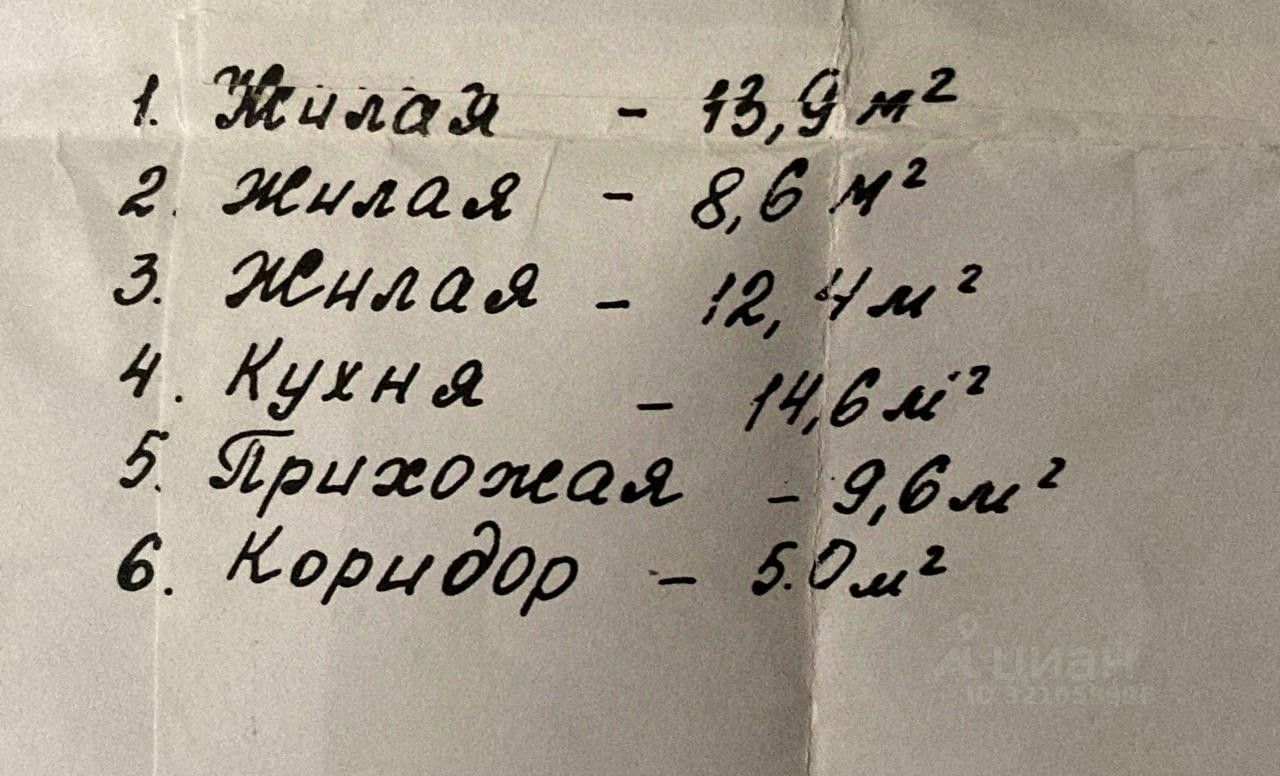 1. Жилая - 13,9 м²
2. Жилая - 8,6 м²
3. Жилая - 12,4 м²
4. Кухня - 14,6 м²
5. Прихожая - 9,6 м²
6. Коридор - 5.0 м²
циан
ID